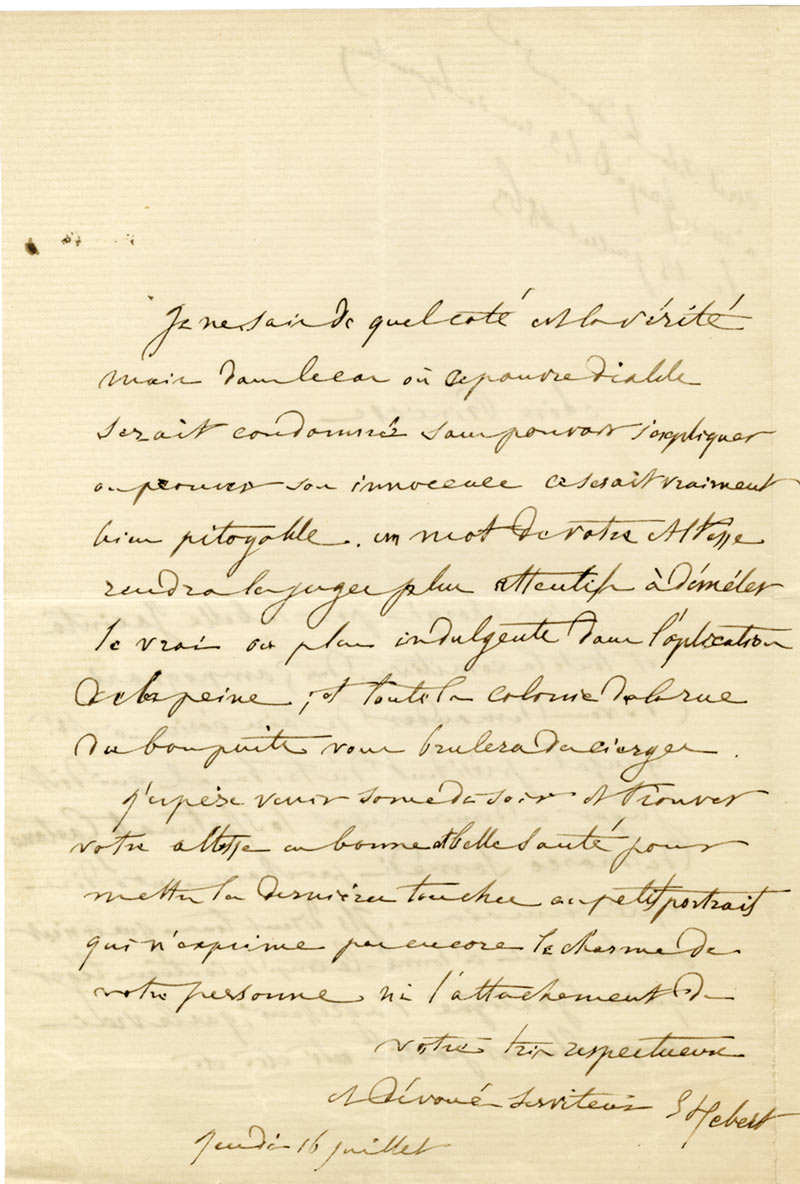 Je ne sais de quel coté est la vérité
mais dans le cas où ce pauvre diable
serait condamné sans pouvoir s'expliquer
ou prouver son innocence ce serait vraiment
bien pitoyable. un mot de votre Altesse
rendra les juges plus attentifs à déméler
le vrai ou plus indulgents dans l'aplication
de la peine ; et toute la colonie de la rue
du bon puits vous brulera des cierges.
J'espère venir samedi soir et trouver
votre altesse en bonne et belle santé pour
mettre les dernières touches au petit portrait
qui n'exprime pas encore le charme de
votre personne ni l'attachement de
votre très respectueux
et dévoué serviteur E Hebert
Jeudi 16 juillet